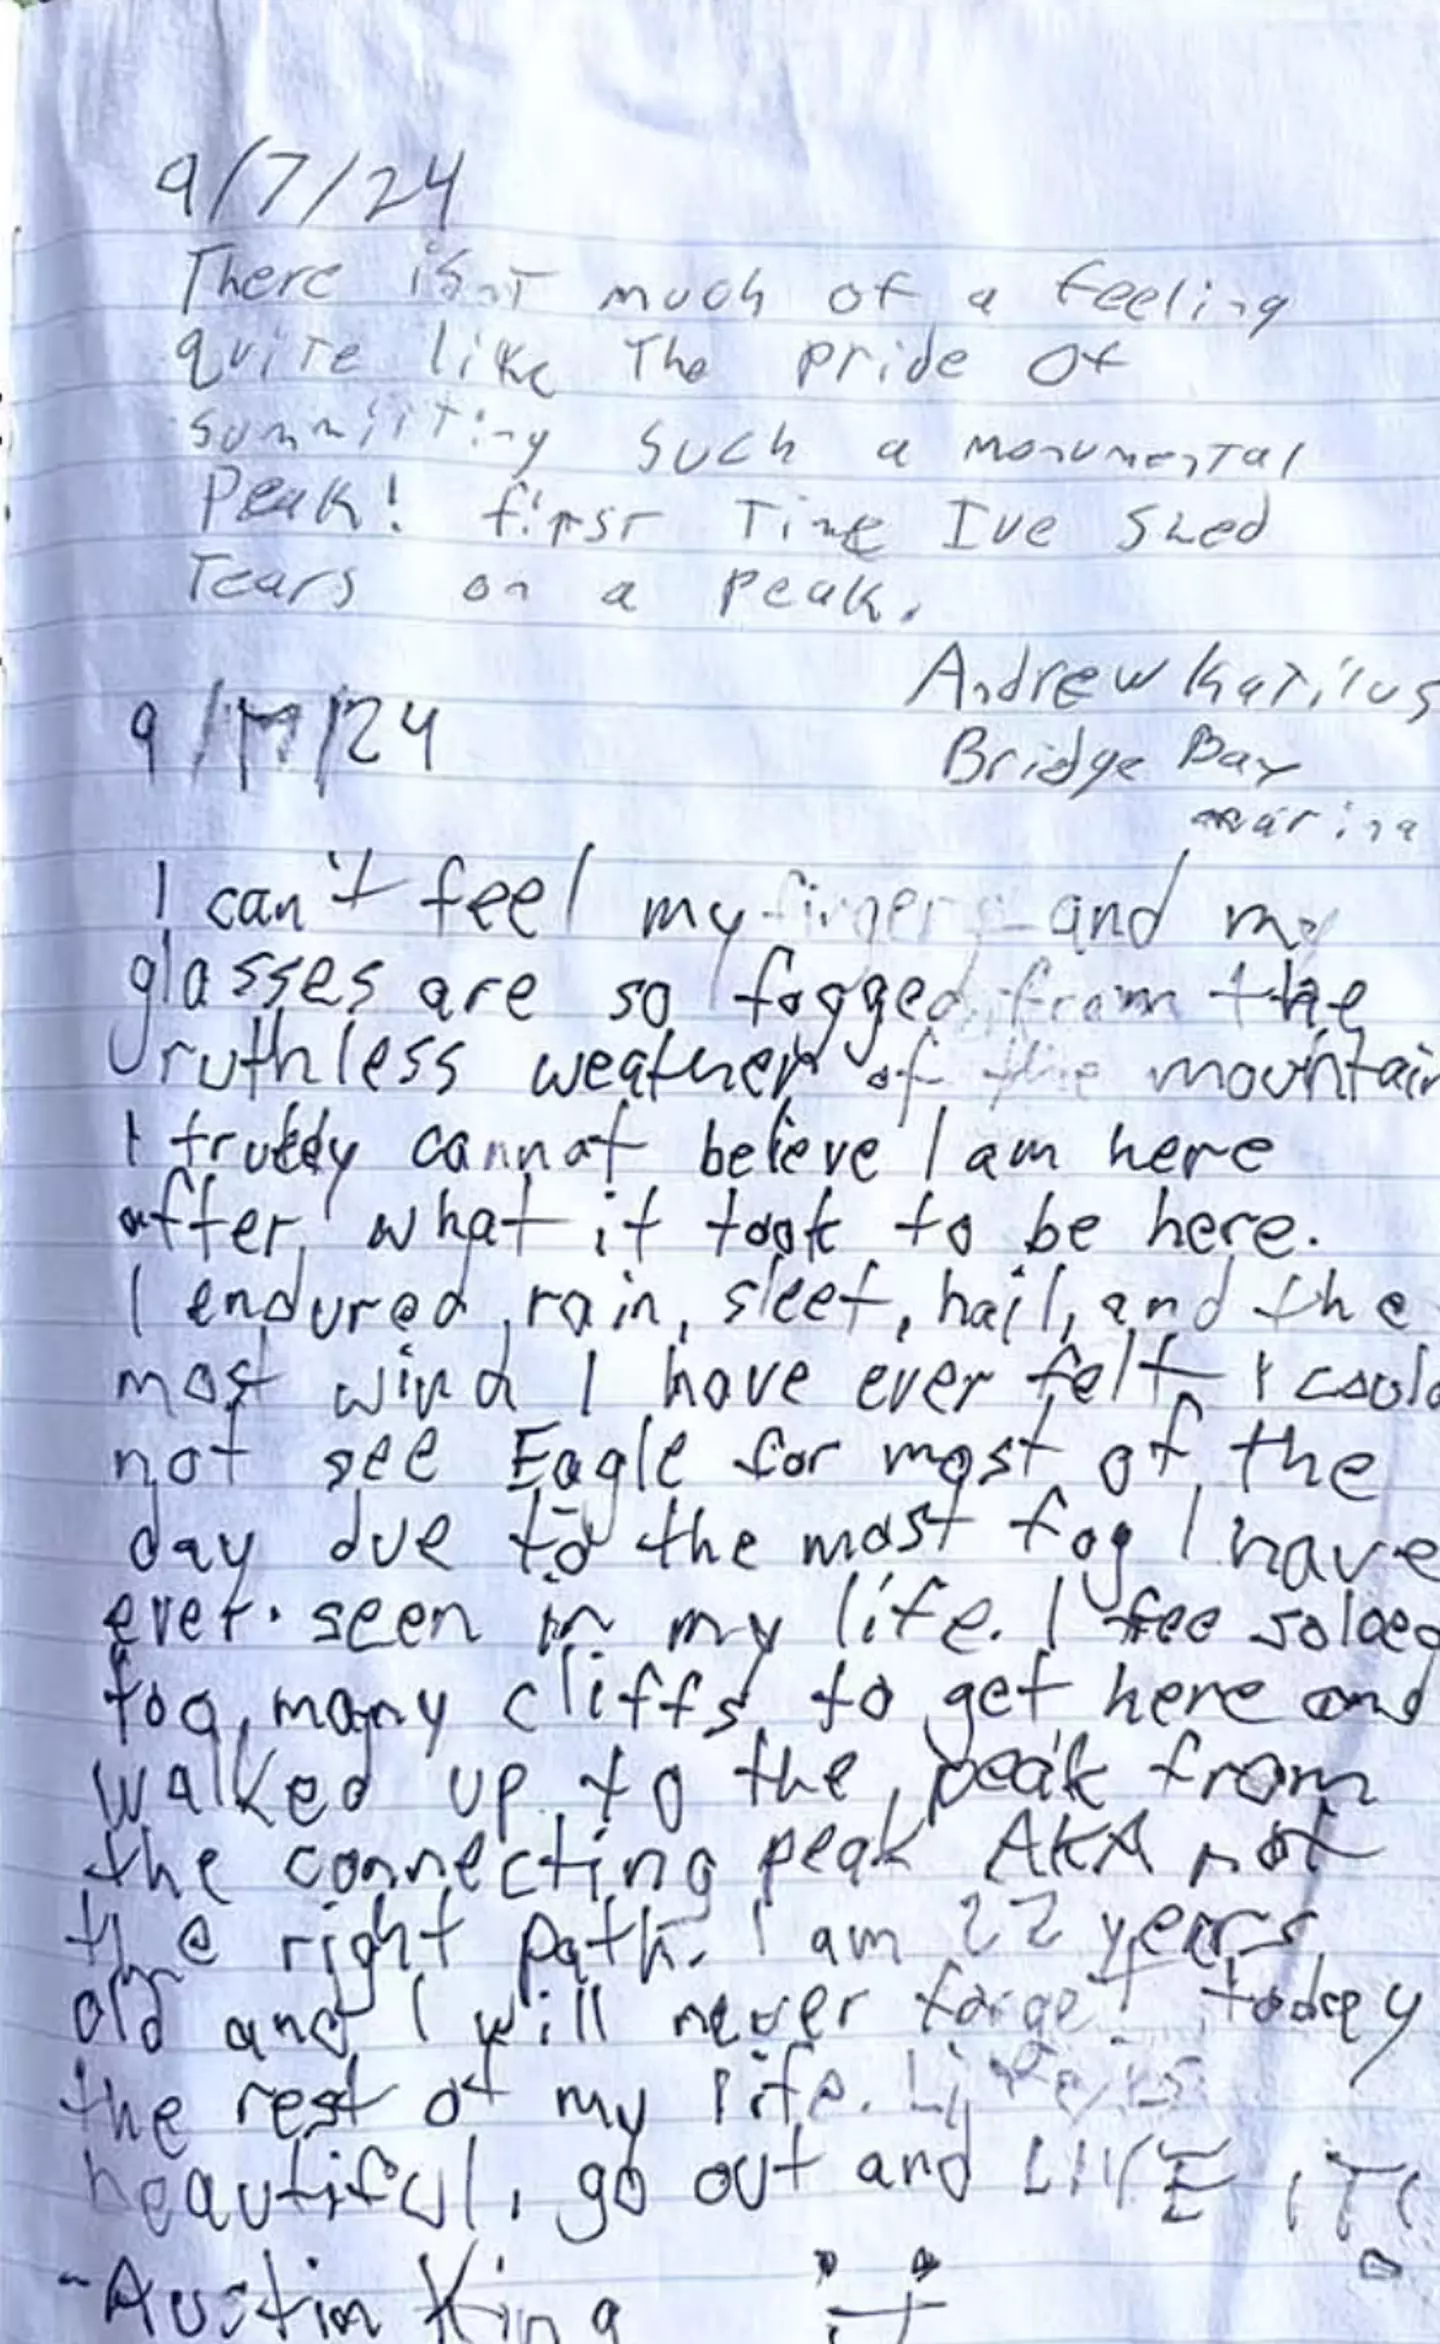 9/7/24
There isnt much of a feeling
quite like The pride of
summitting such a monumental
Peak! first Time Ive shed
Tears on a peak.
Andrew
Bridge Bay
marina
9/17/24
I can't feel my fingers and my
glasses are so fogged from the
ruthless weather of the mountain
I truly cannot believe I am here
after what it took to be here.
I endured rain, sleet, hail, and the
most wind I have ever felt I could
not see Eagle for most of the
day due to the most fog I have
ever seen in my life. I free soloed
too many cliffs to get here and
walked up to the peak from
the connecting peak AKA not
the right path. I am 22 years
old and I will never forget today
the rest of my life. Life is
beautiful, go out and LIVE IT!
-Austin King